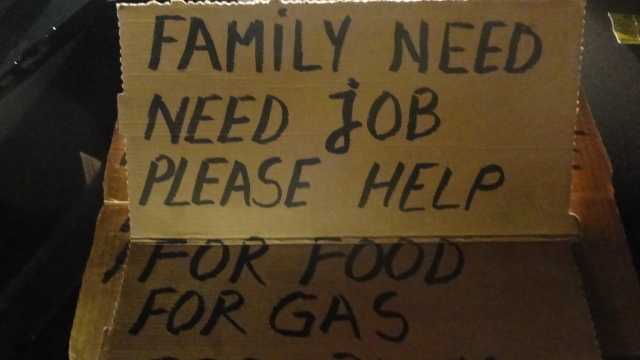 FAMiLY NEED
NEED jOB
PLEASE HELP
FOR FOOD
FOR GAS